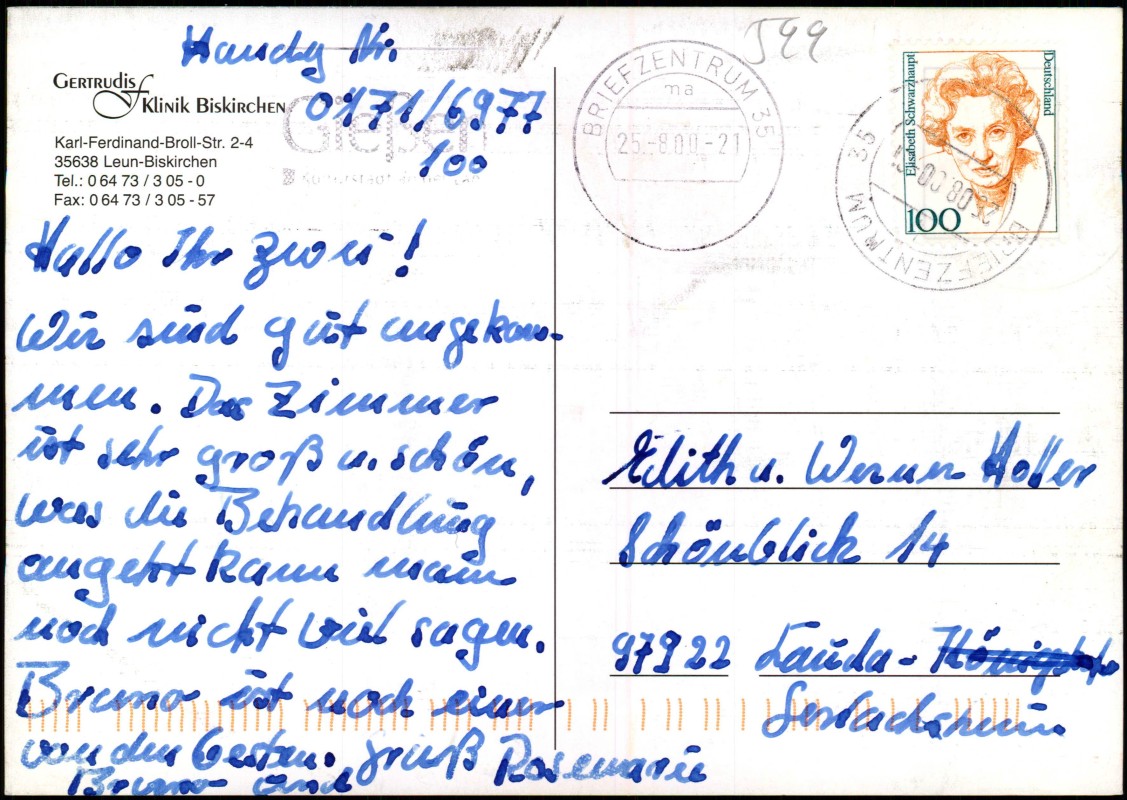 Handy Nr.
0171/6977
100
GERTRUDIS
KLINIK BISKIRCHEN
Karl-Ferdinand-Broll-Str. 2-4
35638 Leun-Biskirchen
Tel.: 0 64 73 / 3 05 - 0
Fax: 0 64 73 / 3 05 - 57
Gießen
Hallo Ihr zwei!
Wir sind gut angekom-
men. Das Zimmer
ist sehr groß u. schön,
was die Behandlung
angeht kann man
noch nicht viel sagen.
Bruno ist noch einer
von den besten. Gruß Rosemarie
Bruno und
599
BRIEFZENTRUM 35
ma
25.-8.00.-21
BRIEFZENTRUM 35
Elisabeth Schwarzhaupt
Deutschland
100
Edith u. Werner Holler
Schönblick 14
97922 Lauda-
Gerlachsheim